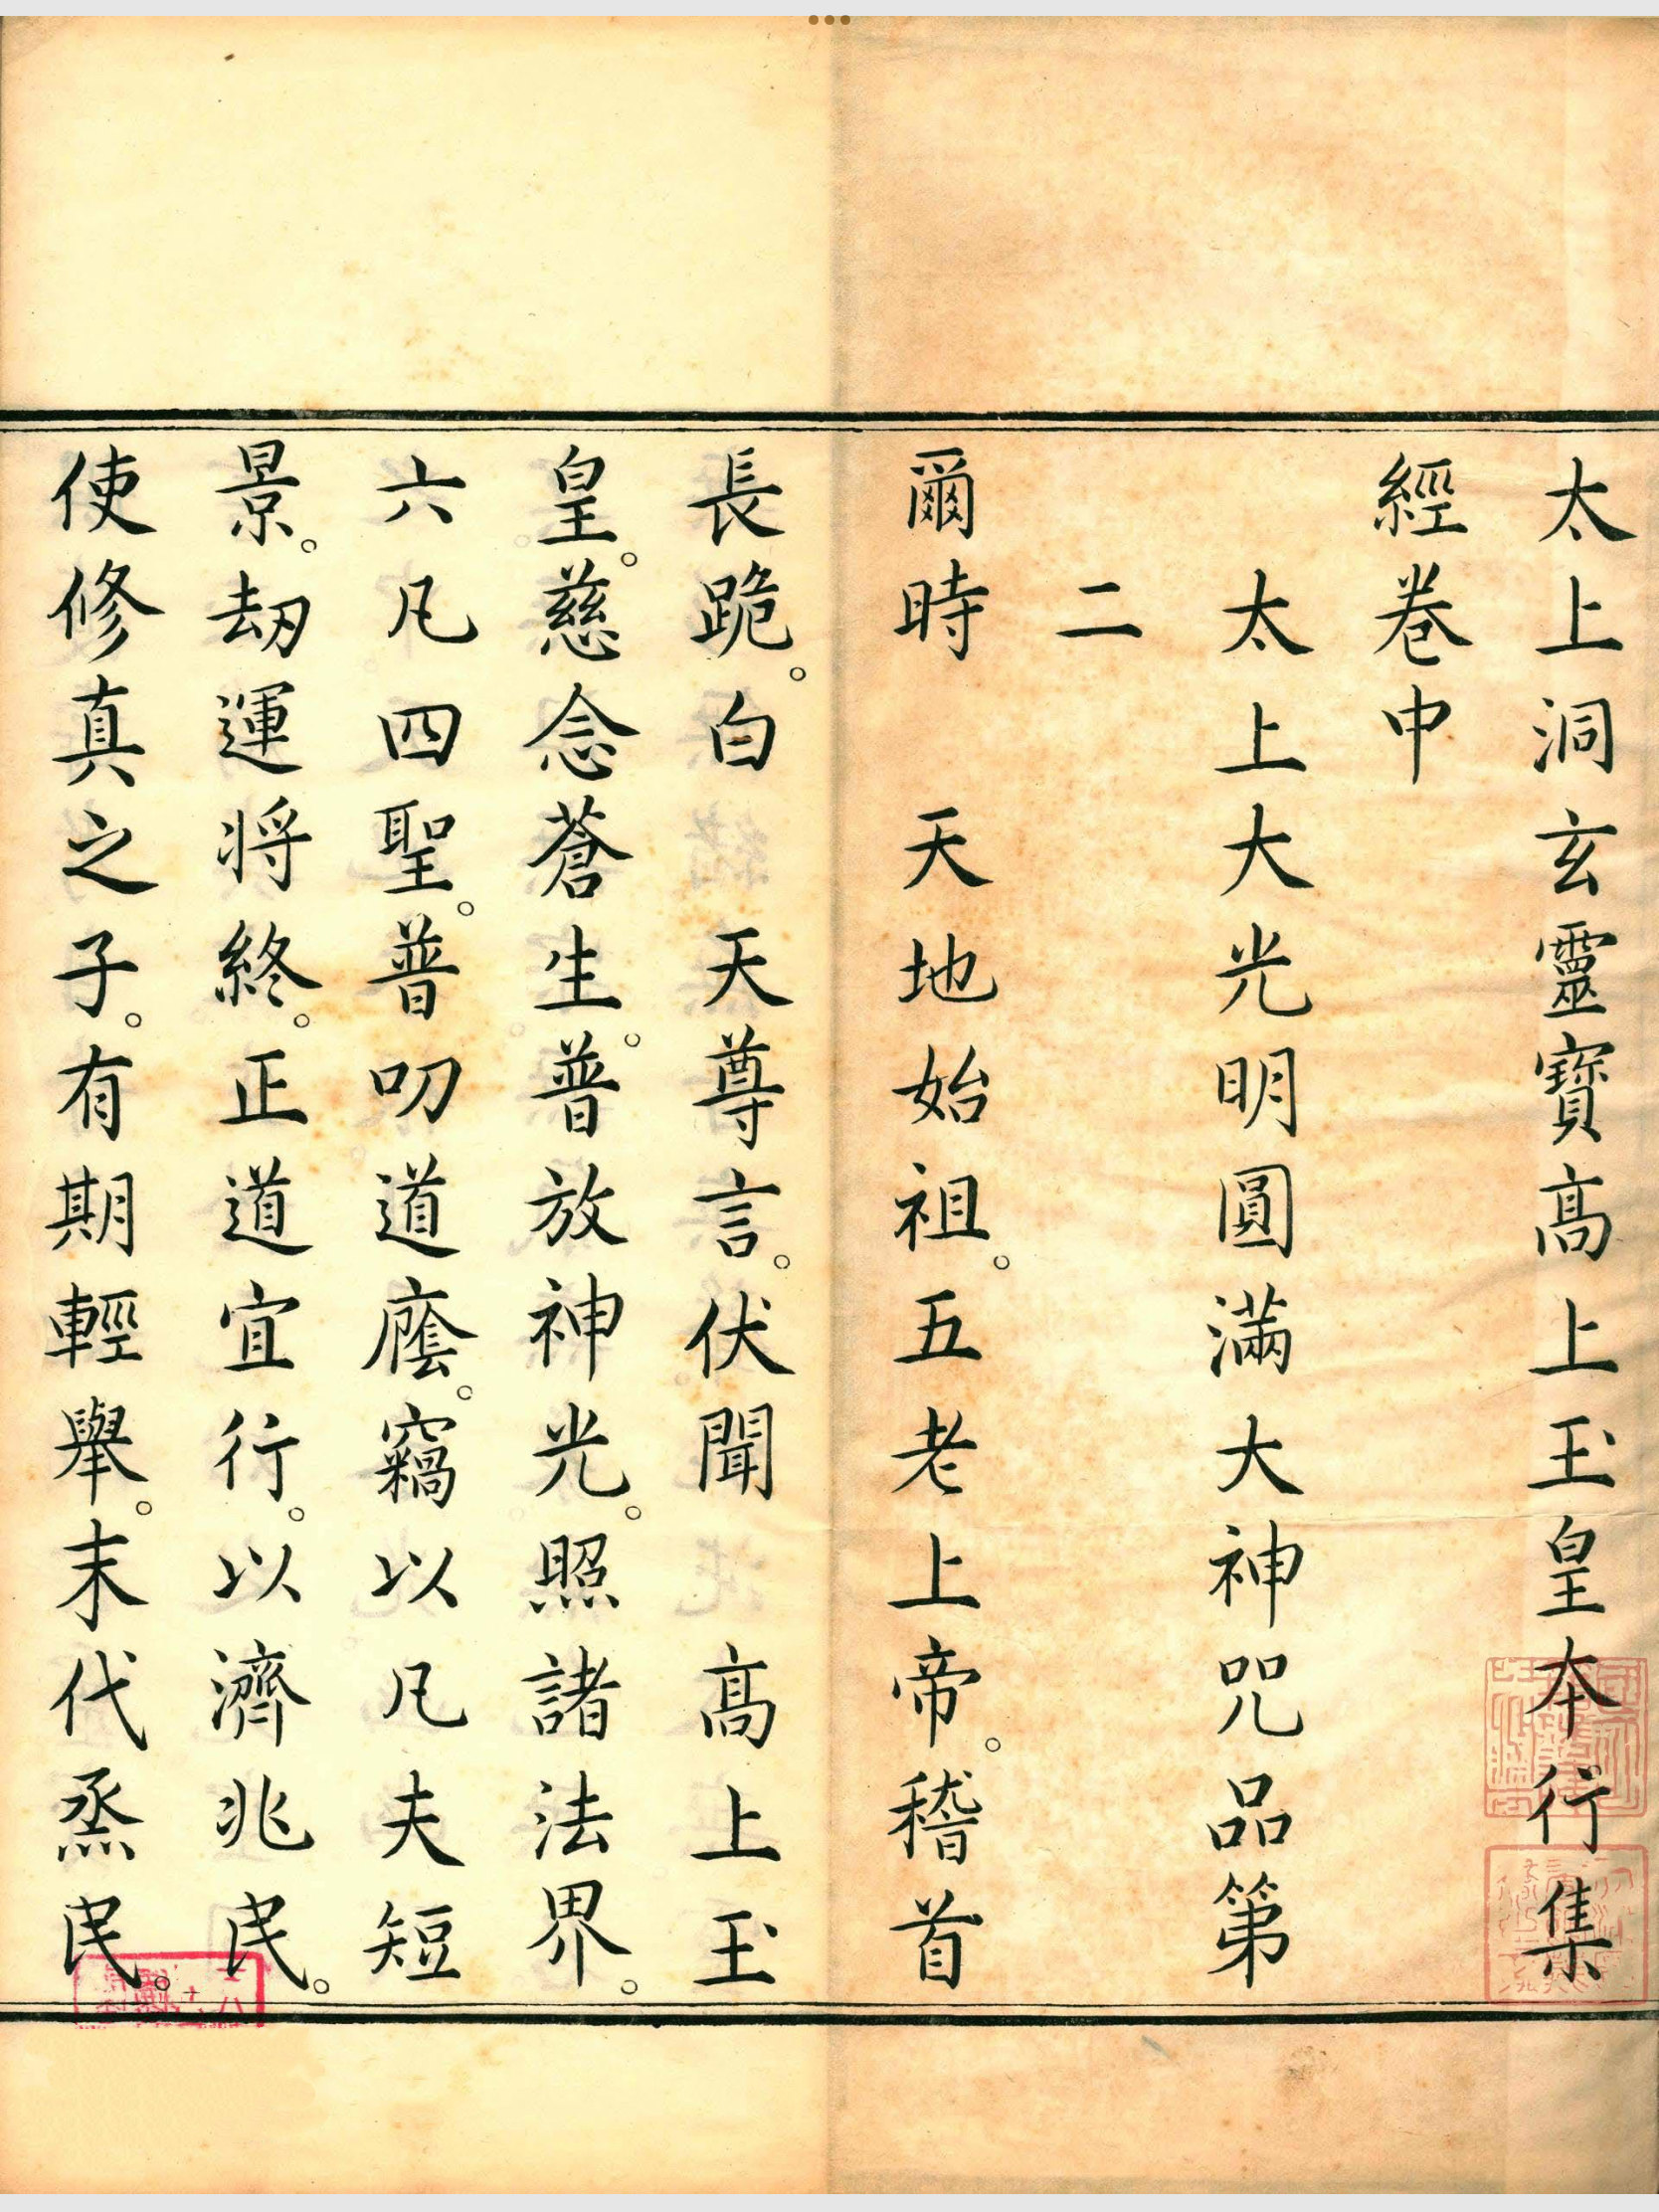 太上洞玄靈寶高上玉皇本行集
經卷中
太上大光明圓滿大神咒品第
二
爾時　天地始祖。五老上帝。稽首
長跪。白　天尊言。伏聞　高上玉
皇。慈念蒼生。普放神光。照諸法界。
六凡四聖。普叨道廕。竊以凡夫短
景。劫運將終。正道宜行。以濟兆民。
使修真之子。有期輕舉。末代烝民。